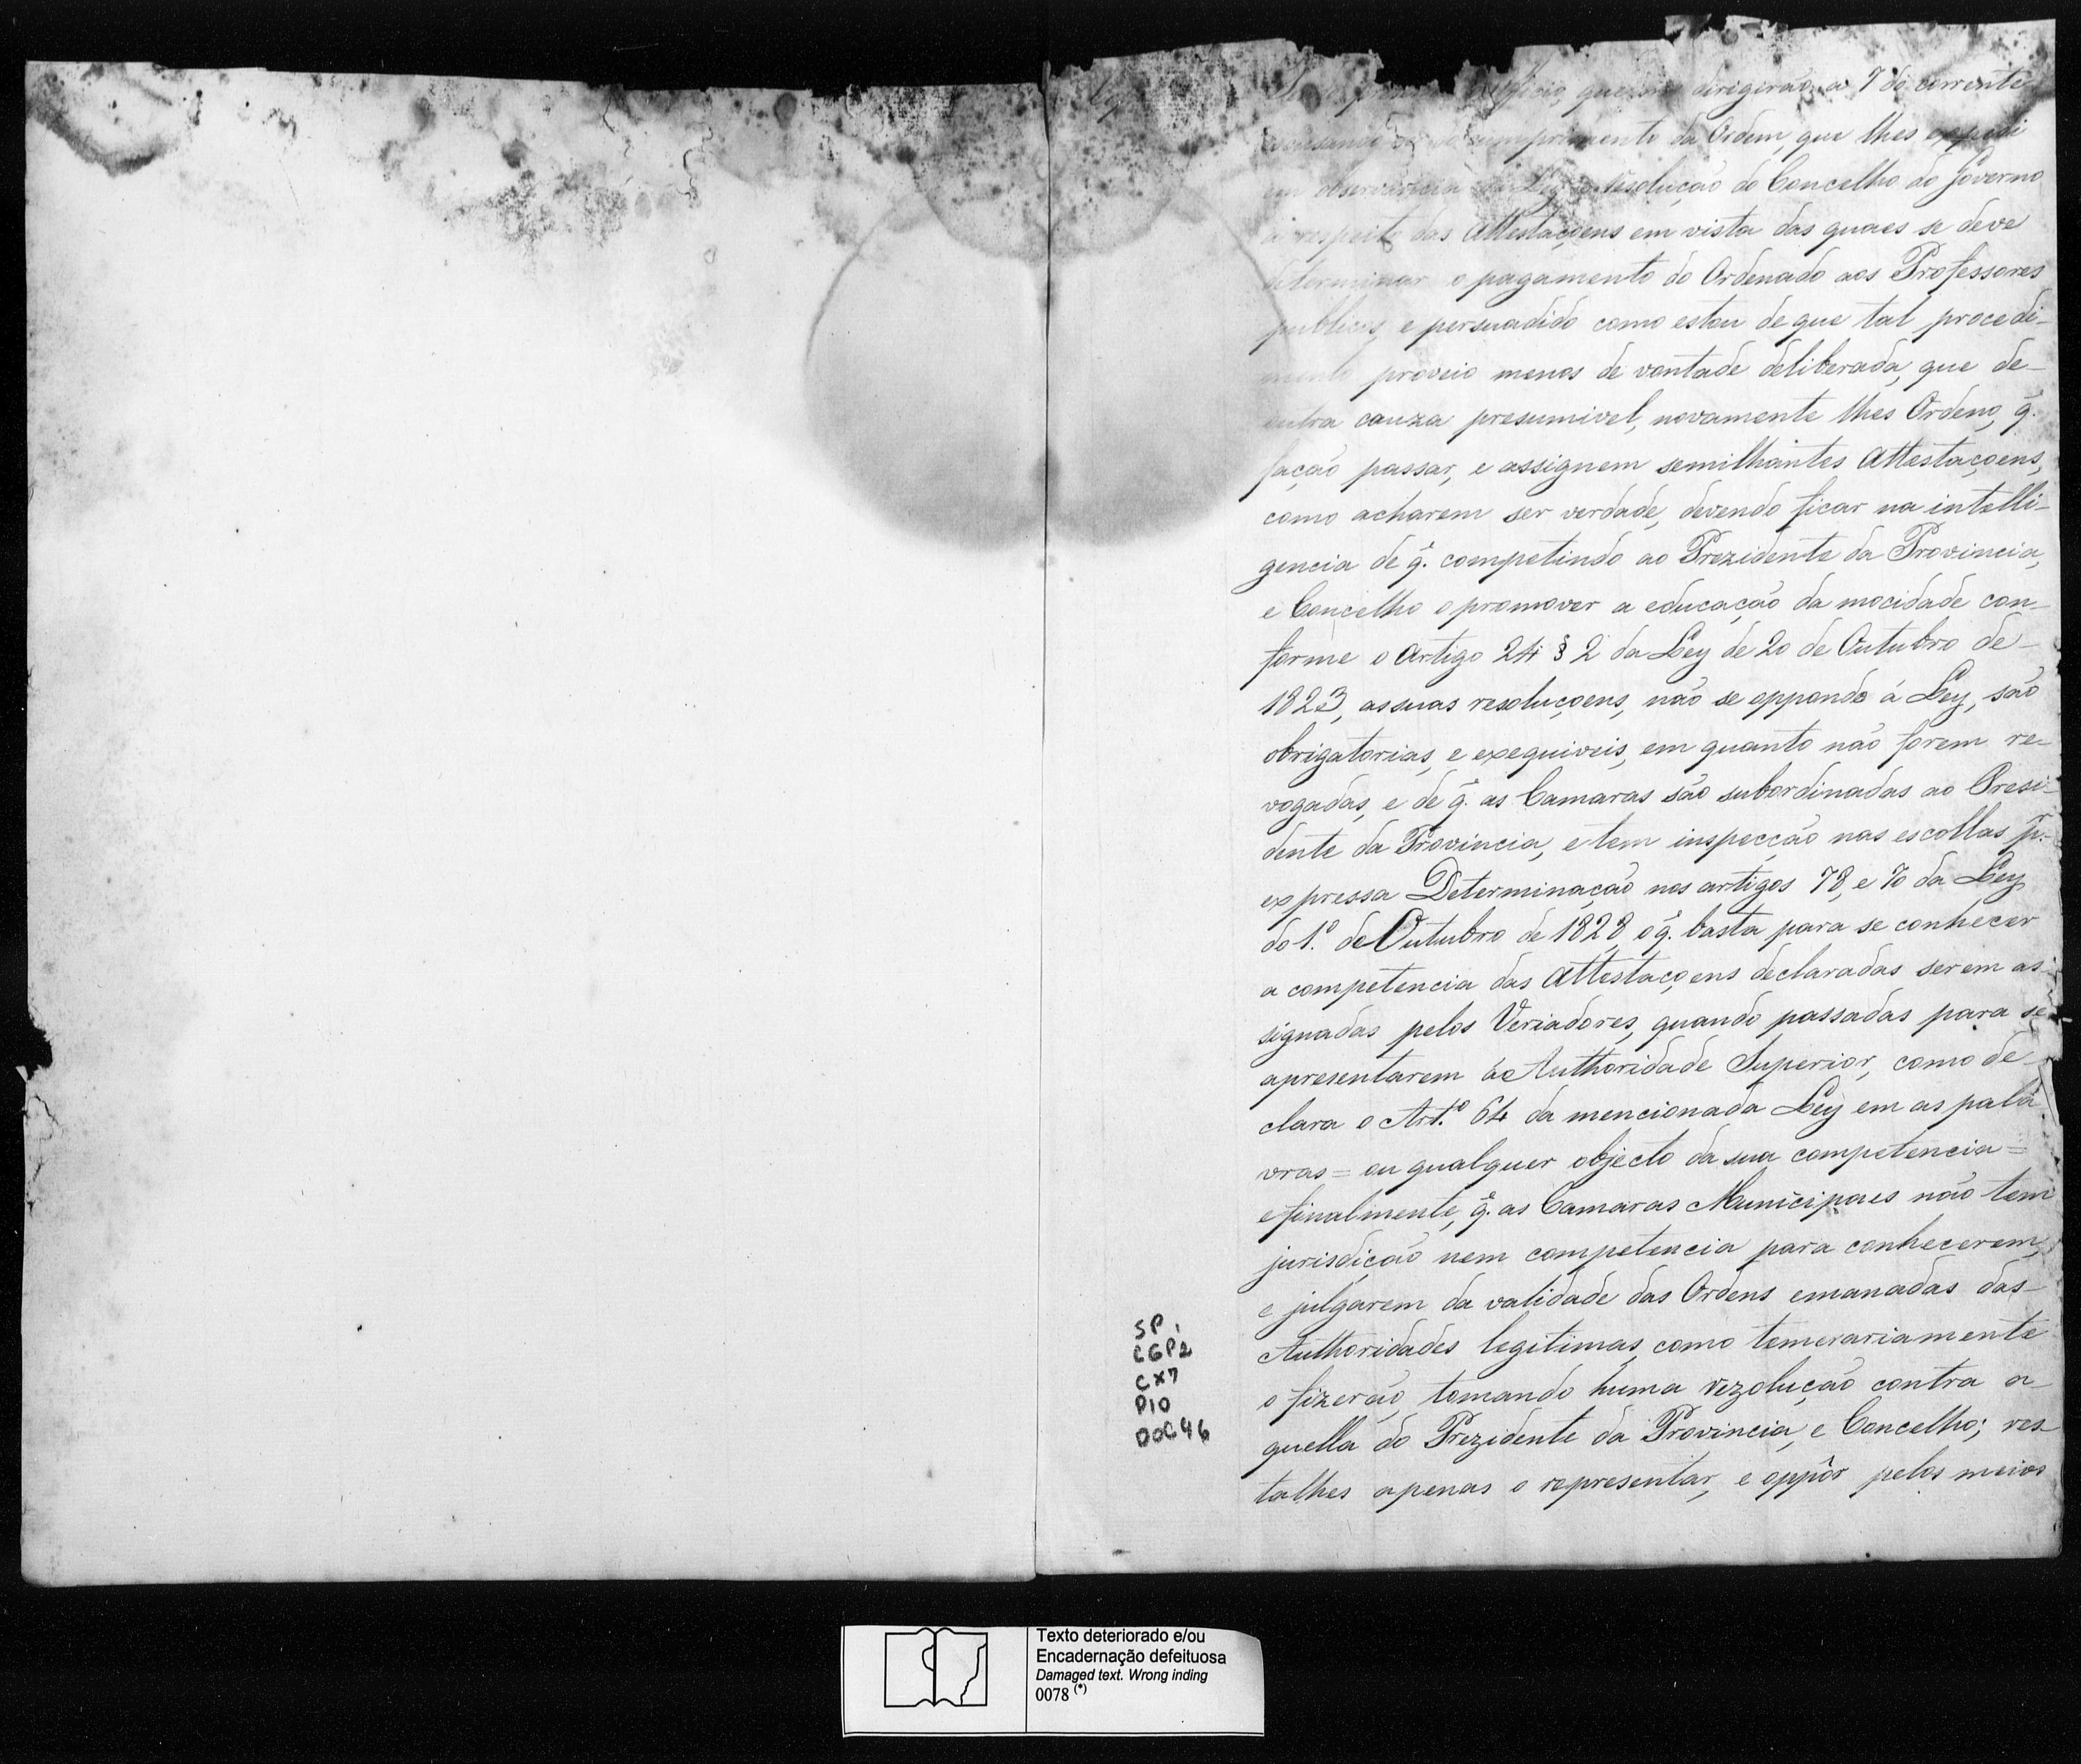 Officio, que me dirigirão a 7 do corrente
comprimento da Ordem, que lhes expedi
em observancia da Ley e resolução do Concelho do Governo
á respeito das Attestaçoens em vista das quaes se deve
determinar o pagamento do Ordenado aos Professores
publicos, e persuadido como estou de que tal procedi-
mento proveio menos de vontade deliberada, que de-
outra cauza presumivel, novamente lhes Ordeno, q̃.
fação passar, e assignem semilhantes Attestaçoens,
como acharem ser verdade, devendo ficar na intelli-
gencia de q̃. competindo ao Prezidente da Provincia,
e Concelho o promover a educação da mocidade con-
forme o Artigo 24 § 2 da Ley de 20 de Outubro de-
1823, as suas resoluçoens, não se oppondo á Ley, são
obrigatorias, e exequiveis, em quanto não forem re-
vogadas, e de q̃. as Camaras são subordinadas ao Presi-
dente da Provincia, e tem inspecção nas escollas p.r
expressa Determinação nos artigos 78, e 70 da Ley
do 1.º de Outubro de 1828 o q̃. basta para se conhecer
a competencia das Attestaçoens declaradas serem as-
signadas pelos Veriadores, quando passadas para se
apresentarem áo Authoridade Superior, como de-
clara o Art.º 64 da mencionada Ley em as pala-
vras = ou qualquer objecto da sua competencia =
e finalmente, q̃. as Camaras Municipaes não tem
jurisdição nem competencia para conhecerem,
e julgarem da validade das Ordens emanadas das-
Authoridades legitimas, como temerariamente
o fizerão, tomando huma rezolução contra a-
quella do Prezidente da Provincia, e Concelho; res-
talhes apenas o representar, e oppôr pelos meios
SP 1
CGP2
CX7
P10
DOC 46
Texto deteriorado e/ou
Encadernação defeituosa
Damaged text. Wrong inding
0078 (*)